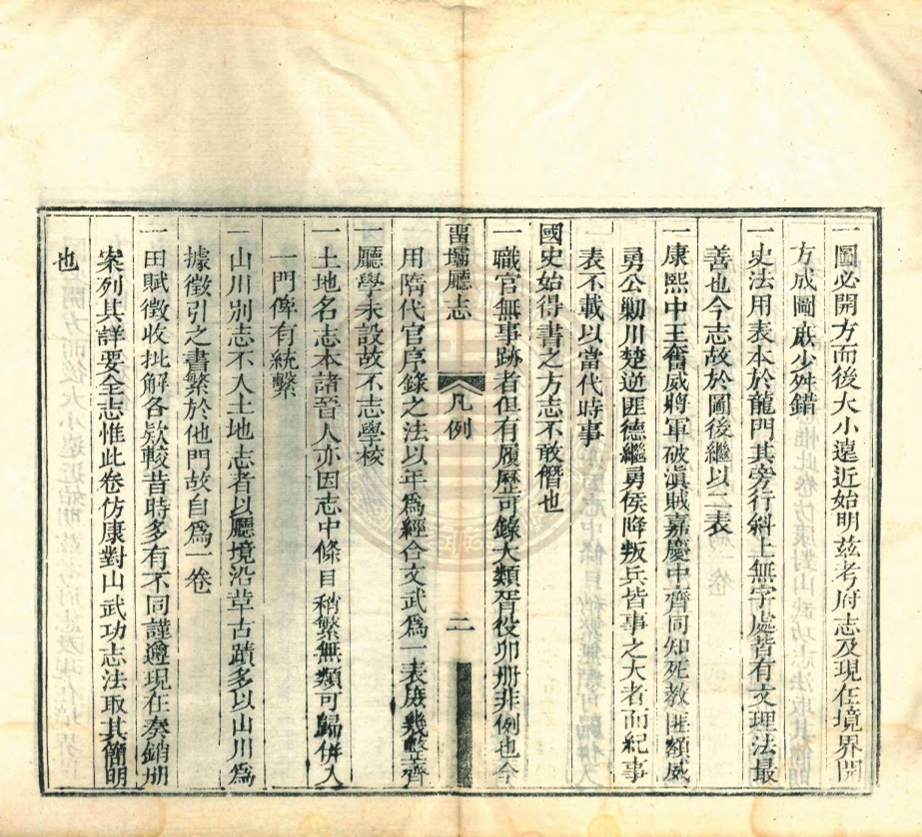 一圖必開方而後大小遠近始明茲考府志及現在境界開
方成圖庶少舛錯
一史法用表本於龍門其旁行斜上無字處皆有文理法最
善也今志故於圖後繼以二表
一康熙中王奮威將軍破滇賊嘉慶中齊同知死教匪額威
勇公勦川楚逆匪德繼勇侯降叛兵皆事之大者而紀事
表不載以當代時事
國史始得書之方志不敢僭也
一職官無事跡者但有履歷可錄大類胥役卯册非例也今
畱壩廳志 凡例 二
用隋代官序錄之法以年爲經合文武爲一表庶幾整齊
一廳學未設故不志學校
一土地名志本諸晉人亦因志中條目稍繁無類可歸併入
一門俾有統繫
一山川別志不入土地志者以廳境沿革古蹟多以山川爲
據徵引之書繁於他門故自爲一卷
一田賦徵收批解各欵較昔時多有不同謹遵現在奏銷册
案列其詳要全志惟此卷仿康對山武功志法取其簡明
也